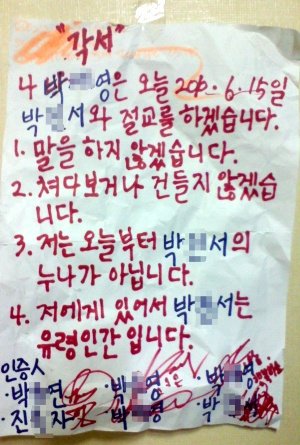 "각서"
나 박 영은 오늘 200 . 6. 15일
박 서와 절교를 하겠습니다.
1. 말을 하지 않겠습니다.
2. 쳐다보거나 건들지 않겠습
니다.
3. 저는 오늘부터 박 서의
누나가 아닙니다.
4. 저에게 있어서 박 서는
유령인간 입니다.
인증人
·박 연 ·박 영 ·박 영
·진 자 ·박 영 ·박